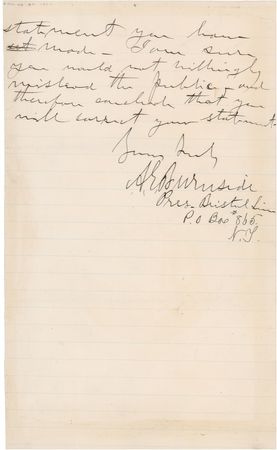 statement you have
made - I am sure
you would not willingly
mislead the public - and
therefore conclude that you
will correct your statement.
Yours truly
A E Burnside
Pres. Bristol Line
P.O Box #865
N.Y.